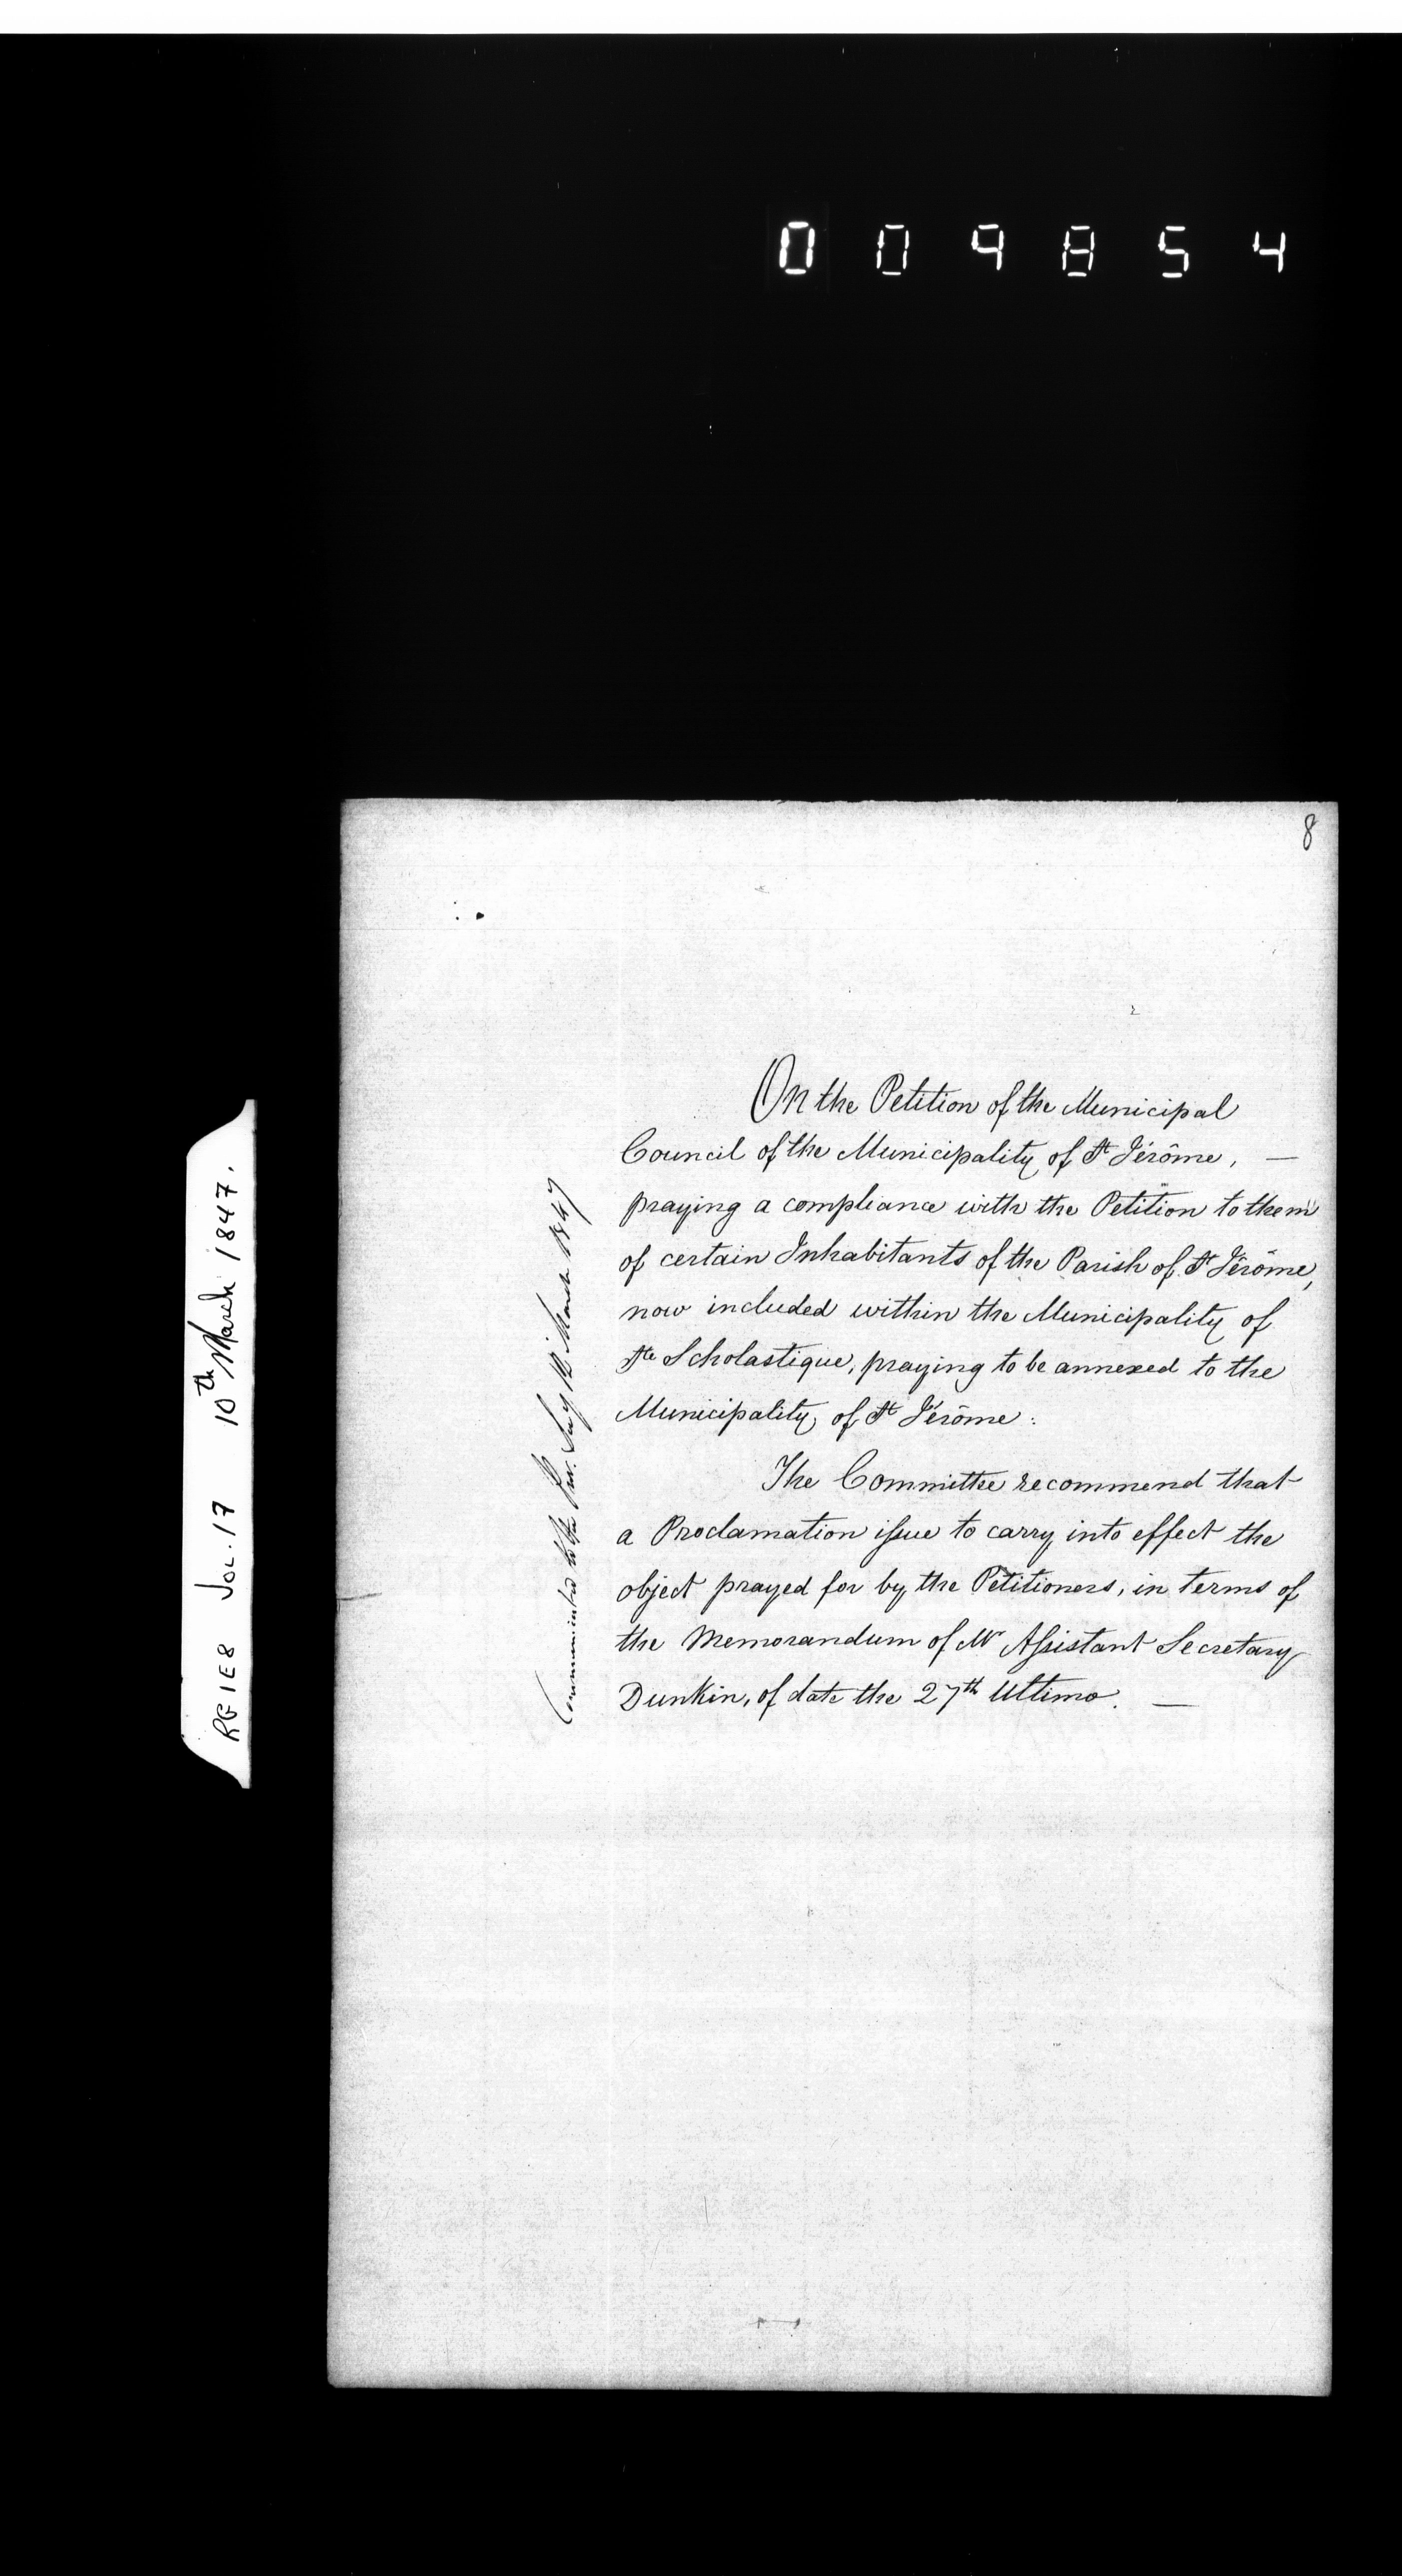 009854
8
On the Petition of the Municipal
Council of the Municipality of St Jérôme, —
praying a compliance with the Petition to them
of certain Inhabitants of the Parish of St Jérôme,
now included within the Municipality of
Ste Scholastique, praying to be annexed to the
Municipality of St Jérôme :
The Committee recommend that
a Proclamation issue to carry into effect the
object prayed for by the Petitioners, in terms of
the Memorandum of Mr Assistant Secretary
Dunkin, of date the 27th Ultimo. —
Communicated to the Prov. Secy March 1847
RG 1 E8 VOL. 17 10th March 1847.